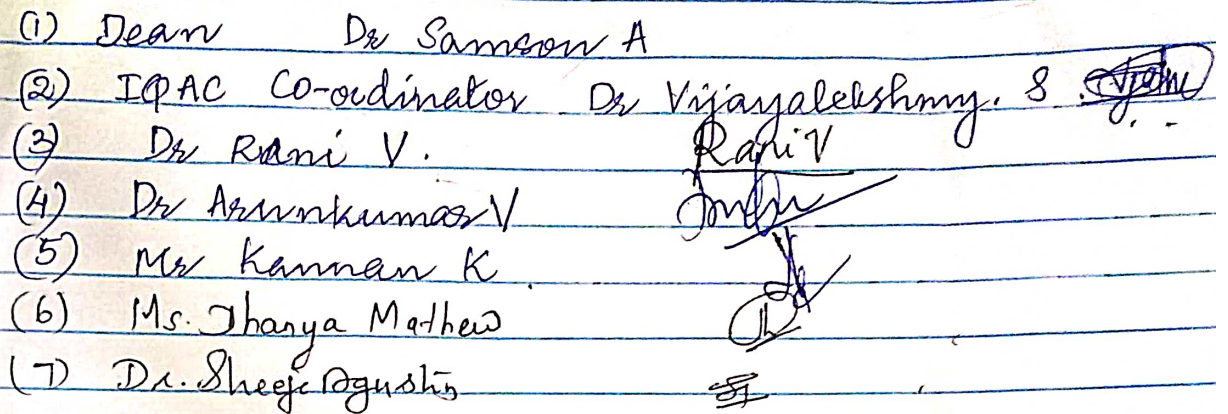 (1) Dean Dr Samson A
(2) IQAC Co-ordinator Dr Vijayalekshmy. S
(3) Dr Rani V. Rani V
(4) Dr Arunkumar V
(5) Mr Kannan K
(6) Ms. Dhanya Mathew
(7) Dr. Sheeje Agustin